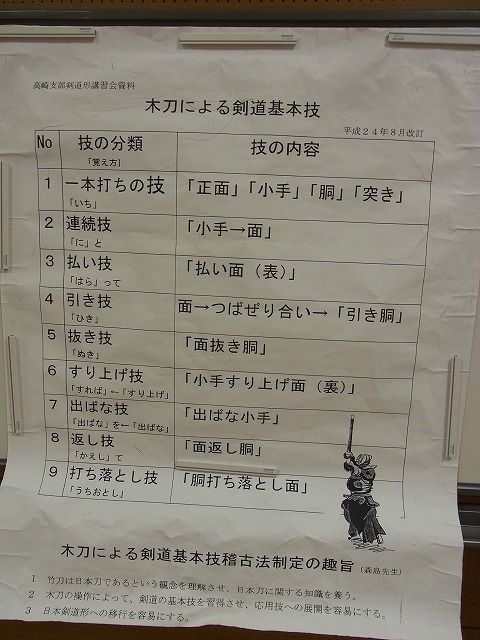 高崎支部剣道形講習会資料
木刀による剣道基本技
平成24年8月改訂
No 技の分類 技の内容
「覚え方」
1 一本打ちの技 「正面」「小手」「胴」「突き」
「いち」
2 連続技 「小手→面」
「に」と
3 払い技 「払い面（表）」
「はら」って
4 引き技 面→つばぜり合い→「引き胴」
「ひき」
5 抜き技 「面抜き胴」
「ぬき」
6 すり上げ技 「小手すり上げ面（裏）」
「すれば」←「すり上げ」
7 出ばな技 「出ばな小手」
「出ばな」を←「出ばな」
8 返し技 「面返し胴」
「かえし」て
9 打ち落とし技 「胴打ち落とし面」
「うちおとし」
木刀による剣道基本技稽古法制定の趣旨（森島先生）
1 竹刀は日本刀であるという観念を理解させ、日本刀に関する知識を養う。
2 木刀の操作によって、剣道の基本技を習得させ、応用技への展開を容易にする。
3 日本剣道形への移行を容易にする。